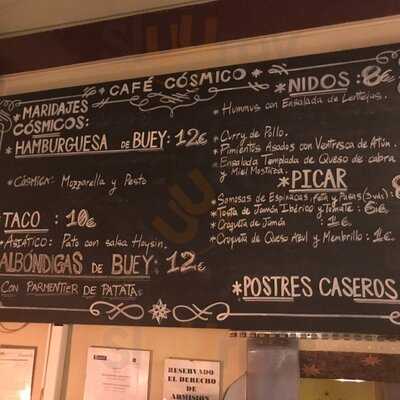 * CAFÉ CÓSMICO *
* MARIDAJES
CÓSMICOS:
* HAMBURGUESA DE BUEY: 12€
* CÓSMICA: Mozzarella y Pesto
TACO: 10€
* ASIÁTICO: Pato con salsa Hoysin.
ALBÓNDIGAS DE BUEY: 12€
CON PARMENTIER DE PATATA *
* NIDOS: 8€
* Hummus con Ensalada de Lentejas.
* Curry de Pollo.
* Pimientos Asados con Ventresca de Atún.
* Ensalada Templada de Queso de cabra
y Miel Mostaza.
* PICAR
Samosas de Espinacas, Feta y Pasas (3 uds):
* Tosta de Jamón Ibérico y Tomate: 6€
* Croqueta de Jamón : 1€
* Croqueta de Queso Azul y Membrillo: 1€
* POSTRES CASEROS
RESERVADO
EL DERECHO
DE
ADMISIÓN